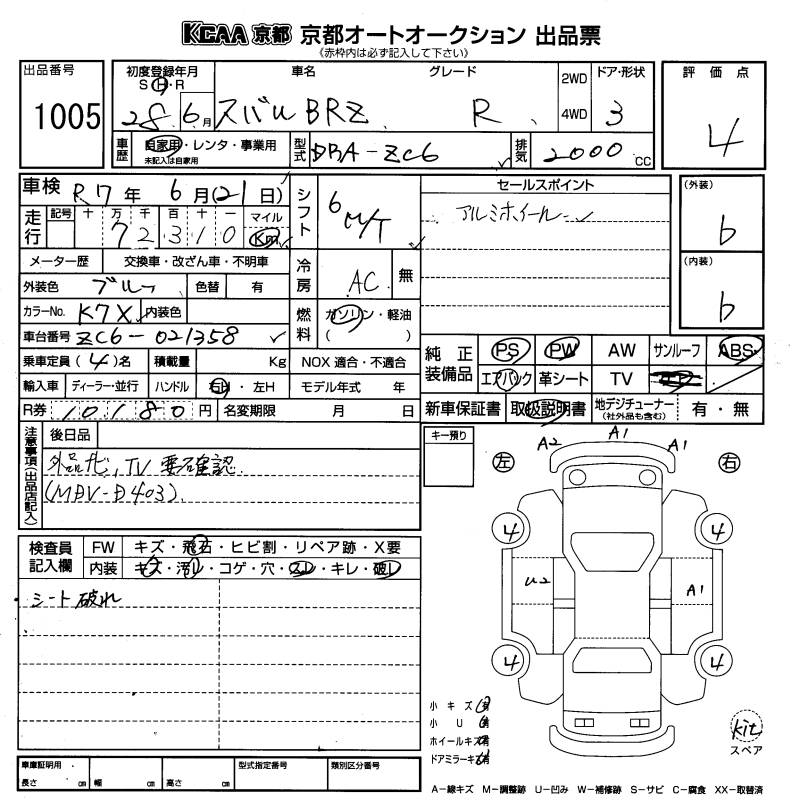 KCAA 京都 京都オートオークション 出品票
《赤枠内は必ず記入して下さい》
出品番号 初度登録年月 車名 グレード ドア・形状 評価点
S H・R 2WD
1005 28 6月 スバル BRZ R 4WD 3 4
車歴 自家用・レンタ・事業用 型式 DBA-ZC6 排気 2000 CC
未記入は自家用
車検 R7年 6月(21日) シフト 6 M/T セールスポイント (外装)
走行 記号 十 万 千 百 十 一 マイル アルミホイール b
72310 Km
メーター歴 交換車・改ざん車・不明車 冷房 AC 無 (内装)
外装色 ブルー 色替 有 b
カラーNo. K7X 内装色 燃料 ガソリン・軽油
車台番号 ZC6-021358 ( )
乗車定員 (4)名 積載量 Kg NOX 適合・不適合 純正装備品 PS PW AW サンルーフ ABS
輸入車 ディーラー・並行 ハンドル 右H・左H モデル年式 年 エアバック 革シート TV
R券 10180円 名変期限 月 日 新車保証書 取扱説明書 地デジチューナー 有・無
(社外品も含む)
注意事項(出品店記入) 後日品 キー預り
外品ナビ,TV 要確認
(MDV-D403)
左 A2 A1 A1 右
検査員記入欄 FW キズ・飛石・ヒビ割・リペア跡・X要
内装 キズ・汚レ・コゲ・穴・スレ・キレ・破レ
シート破れ
4 4
U2 A1
4 4
小キズ 有
小U 有
ホイールキズ 有
ドアミラーキズ 有
kit
スペア
車庫証明用 型式指定番号 類別区分番号
長さ cm 幅 cm 高さ cm
A−線キズ M−調整跡 U−凹み W−補修跡 S−サビ C−腐食 XX−取替済